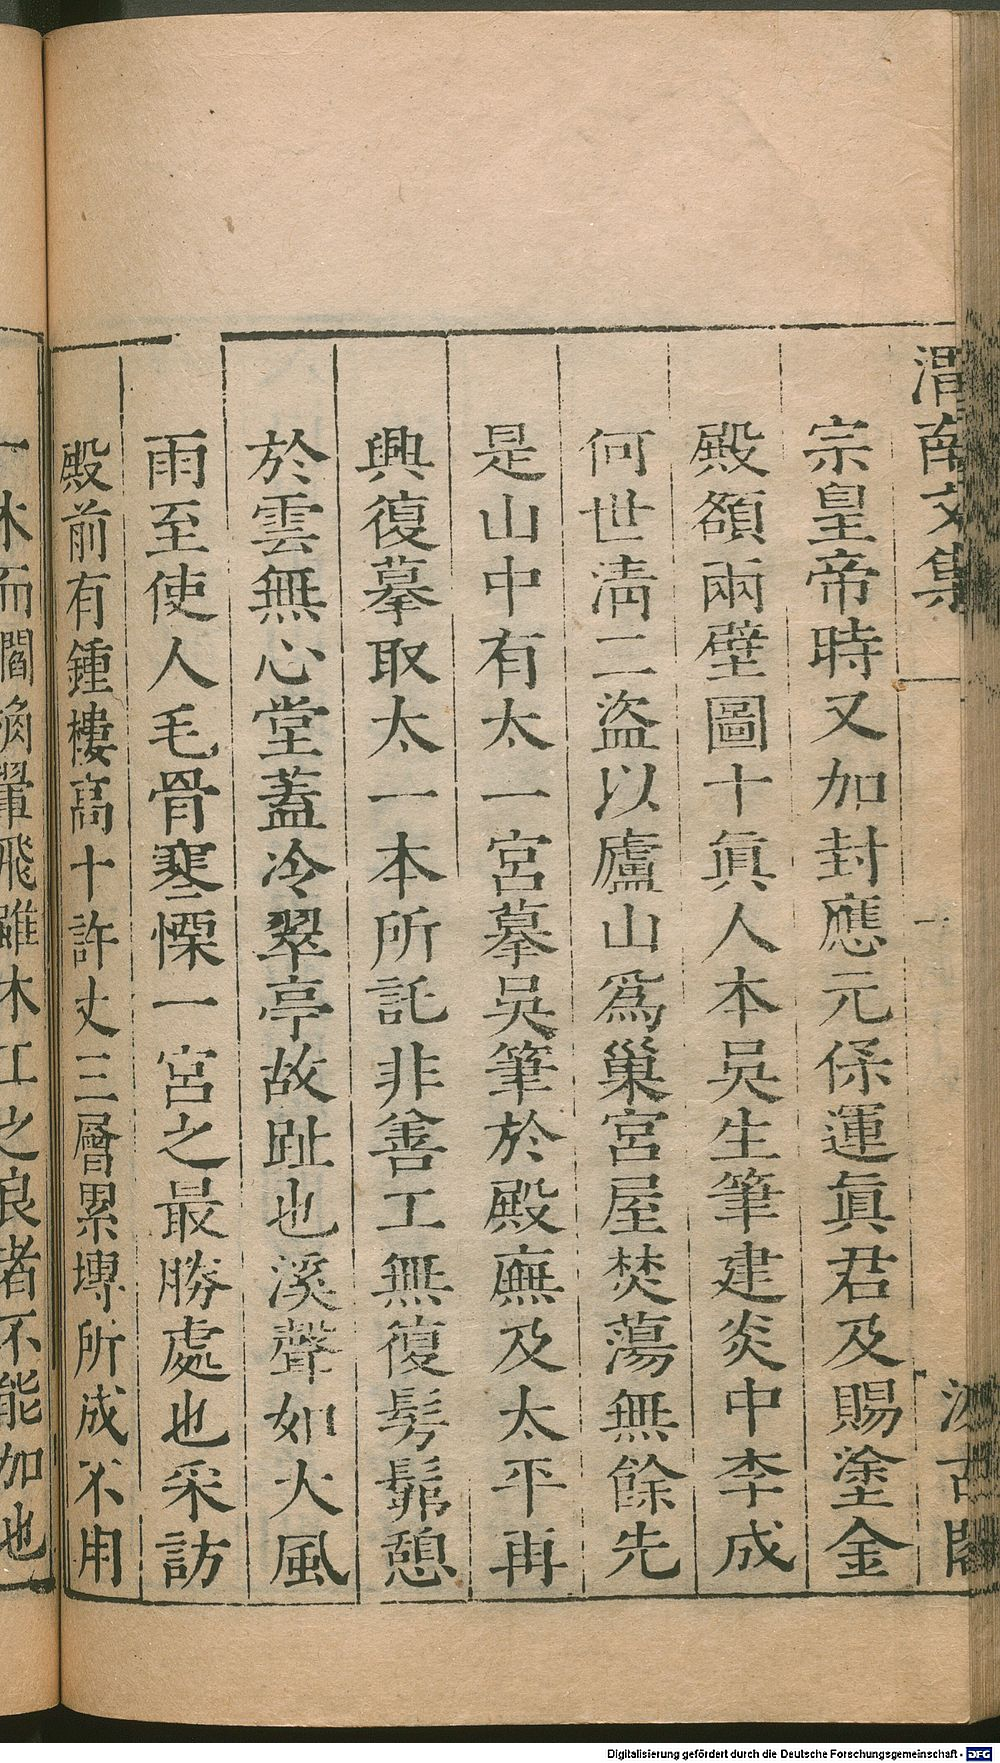 渭南文集
汲古閣
宗皇帝時又加封應元保運眞君及賜塗金
殿額兩壁圖十眞人本吳生筆建炎中李成
何世淸二盜以廬山爲巢宮屋焚蕩無餘先
是山中有太一宮摹吳筆於殿廡及太平再
興復摹取太一本所託非善工無復髣髴憩
於雲無心堂蓋冷翠亭故趾也溪聲如大風
雨至使人毛骨寒慄一宮之最勝處也采訪
殿前有鍾樓高十許丈三層累塼所成不用
一木而櫩桷翬飛雖木工之良者不能加也
Digitalisierung gefördert durch die Deutsche Forschungsgemeinschaft - DFG